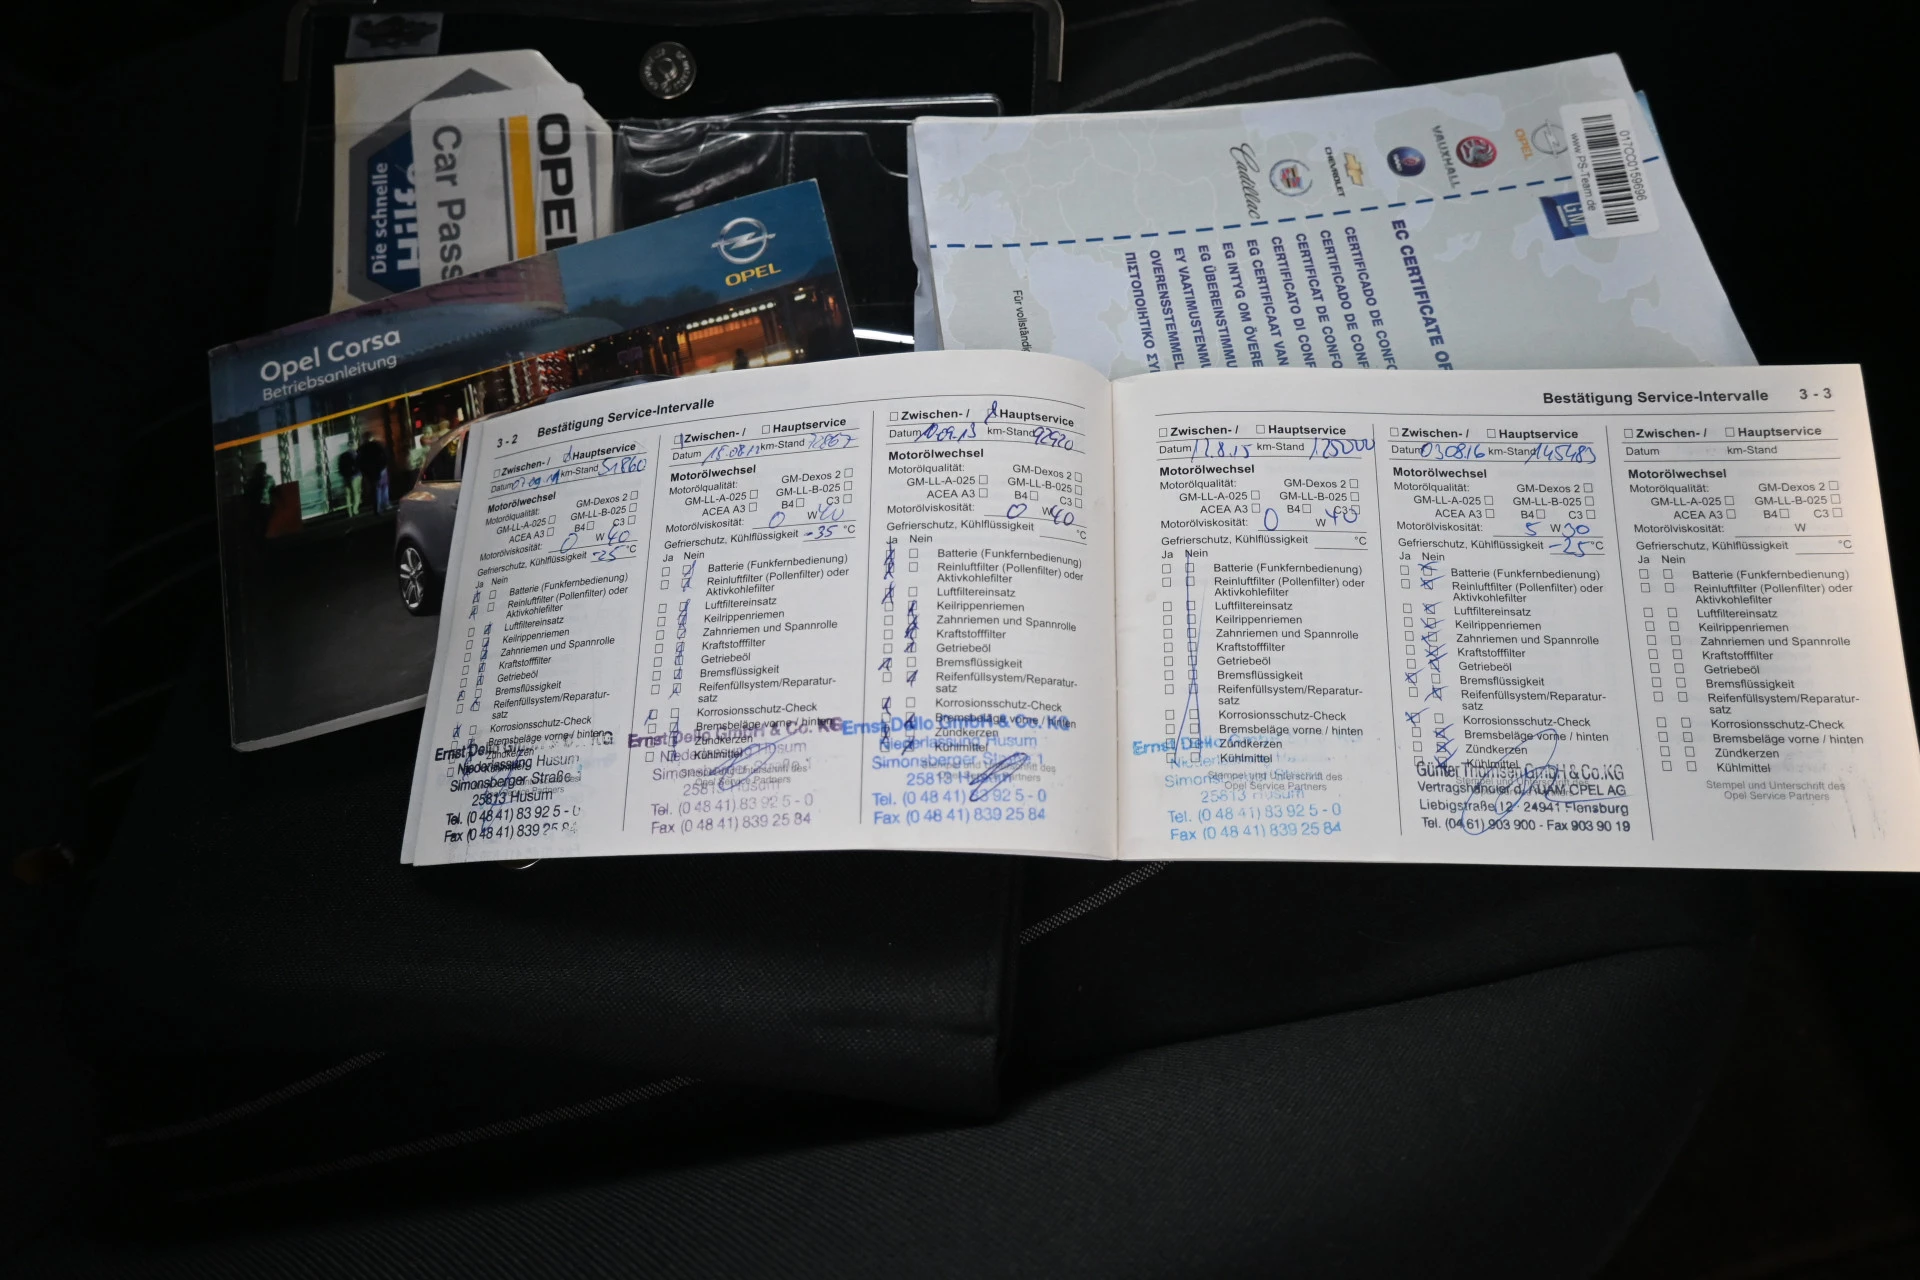 Die schnelle
Hilfe
Car Pass
OPEL
OPEL
Opel Corsa
Betriebsanleitung
017CC0159696
www.PS-Team.de
GM
OPEL
VAUXHALL
CHEVROLET
Cadillac
EC CERTIFICATE OF
CERTIFICADO DE CONF
CERTIFICADO DE CONFO
CERTIFICAT DE CONFO
CERTIFICATO DI CONF
EG CERTIFICAAT VAN
EG INTYG OM ÖVERE
EG ÜBEREINSTIMMU
EY VAATIMUSTENMU
OVERENSSTEMMEL
ΠΙΣΤΟΠΟΙΗΤΙΚΟ ΣΥ
Für vollständi
3-2 Bestätigung Service-Intervalle
Zwischen- / Hauptservice
Datum km-Stand 51860
Motorölwechsel
Motorölqualität: GM-Dexos 2
GM-LL-A-025 GM-LL-B-025
ACEA A3 B4 C3
Motorölviskosität: 0 W 40
Gefrierschutz, Kühlflüssigkeit -25 °C
Ja Nein
Batterie (Funkfernbedienung)
Reinluftfilter (Pollenfilter) oder
Aktivkohlefilter
Luftfiltereinsatz
Keilrippenriemen
Zahnriemen und Spannrolle
Kraftstofffilter
Getriebeöl
Bremsflüssigkeit
Reifenfüllsystem/Reparatur-
satz
Korrosionsschutz-Check
Bremsbeläge vorne / hinten
Zündkerzen
Ernst Dello GmbH & Co. KG
Niederlassung Husum
Simonsberger Straße
25813 Husum
Tel. (0 48 41) 83 92 5 - 0
Fax (0 48 41) 839 25 84
Zwischen- / Hauptservice
Datum km-Stand
Motorölwechsel
Motorölqualität: GM-Dexos 2
GM-LL-A-025 GM-LL-B-025
ACEA A3 B4 C3
Motorölviskosität: 0 W 40
Gefrierschutz, Kühlflüssigkeit -35 °C
Ja Nein
Batterie (Funkfernbedienung)
Reinluftfilter (Pollenfilter) oder
Aktivkohlefilter
Luftfiltereinsatz
Keilrippenriemen
Zahnriemen und Spannrolle
Kraftstofffilter
Getriebeöl
Bremsflüssigkeit
Reifenfüllsystem/Reparatur-
satz
Korrosionsschutz-Check
Bremsbeläge vorne / hinten
Zündkerzen
Kühlmittel
Stempel und Unterschrift des
Opel Service Partners
Ernst Dello GmbH & Co. KG
Niederlassung Husum
Simonsberger Straße 1
25813 Husum
Tel. (0 48 41) 83 92 5 - 0
Fax (0 48 41) 839 25 84
Zwischen- / Hauptservice
Datum 10.09.13 km-Stand 92920
Motorölwechsel
Motorölqualität: GM-Dexos 2
GM-LL-A-025 GM-LL-B-025
ACEA A3 B4 C3
Motorölviskosität: 0 W 40
Gefrierschutz, Kühlflüssigkeit °C
Ja Nein
Batterie (Funkfernbedienung)
Reinluftfilter (Pollenfilter) oder
Aktivkohlefilter
Luftfiltereinsatz
Keilrippenriemen
Zahnriemen und Spannrolle
Kraftstofffilter
Getriebeöl
Bremsflüssigkeit
Reifenfüllsystem/Reparatur-
satz
Korrosionsschutz-Check
Bremsbeläge vorne / hinten
Zündkerzen
Kühlmittel
Ernst Dello GmbH & Co. KG
Niederlassung Husum
Simonsberger Straße 1
25813 Husum
Tel. (0 48 41) 83 92 5 - 0
Fax (0 48 41) 839 25 84
Bestätigung Service-Intervalle 3 - 3
Zwischen- / Hauptservice
Datum 17.8.15 km-Stand 125000
Motorölwechsel
Motorölqualität: GM-Dexos 2
GM-LL-A-025 GM-LL-B-025
ACEA A3 B4 C3
Motorölviskosität: 0 W 40
Gefrierschutz, Kühlflüssigkeit °C
Ja Nein
Batterie (Funkfernbedienung)
Reinluftfilter (Pollenfilter) oder
Aktivkohlefilter
Luftfiltereinsatz
Keilrippenriemen
Zahnriemen und Spannrolle
Kraftstofffilter
Getriebeöl
Bremsflüssigkeit
Reifenfüllsystem/Reparatur-
satz
Korrosionsschutz-Check
Bremsbeläge vorne / hinten
Zündkerzen
Kühlmittel
Stempel und Unterschrift des
Opel Service Partners
Ernst Dello
25813 Husum
Tel. (0 48 41) 83 92 5 - 0
Fax (0 48 41) 839 25 84
Zwischen- / Hauptservice
Datum 030816 km-Stand 145483
Motorölwechsel
Motorölqualität: GM-Dexos 2
GM-LL-A-025 GM-LL-B-025
ACEA A3 B4 C3
Motorölviskosität: 5 W 30
Gefrierschutz, Kühlflüssigkeit -25 °C
Ja Nein
Batterie (Funkfernbedienung)
Reinluftfilter (Pollenfilter) oder
Aktivkohlefilter
Luftfiltereinsatz
Keilrippenriemen
Zahnriemen und Spannrolle
Kraftstofffilter
Getriebeöl
Bremsflüssigkeit
Reifenfüllsystem/Reparatur-
satz
Korrosionsschutz-Check
Bremsbeläge vorne / hinten
Zündkerzen
Kühlmittel
Günter Thomsen GmbH & Co.KG
Vertragshändler d. ADAM OPEL AG
Liebigstraße 12 · 24941 Flensburg
Tel. (04 61) 903 900 - Fax 903 90 19
Zwischen- / Hauptservice
Datum km-Stand
Motorölwechsel
Motorölqualität: GM-Dexos 2
GM-LL-A-025 GM-LL-B-025
ACEA A3 B4 C3
Motorölviskosität: W
Gefrierschutz, Kühlflüssigkeit °C
Ja Nein
Batterie (Funkfernbedienung)
Reinluftfilter (Pollenfilter) oder
Aktivkohlefilter
Luftfiltereinsatz
Keilrippenriemen
Zahnriemen und Spannrolle
Kraftstofffilter
Getriebeöl
Bremsflüssigkeit
Reifenfüllsystem/Reparatur-
satz
Korrosionsschutz-Check
Bremsbeläge vorne / hinten
Zündkerzen
Kühlmittel
Stempel und Unterschrift des
Opel Service Partners